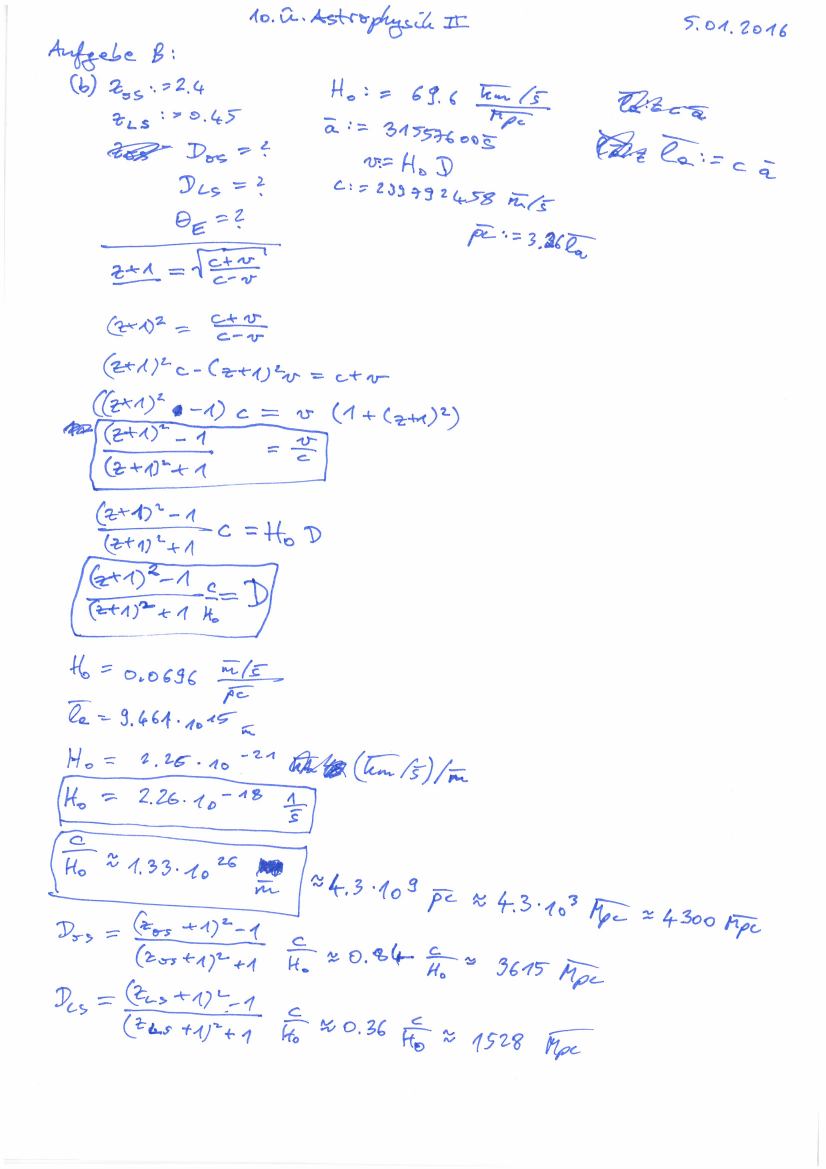 10. Ü. Astrophysik II 5.01.2016
Aufgabe B:
(b) z_OS := 2.4
z_LS := 0.45
D_OS = ?
D_LS = ?
Θ_E = ?
H_0 := 69.6 (k̅m̅/s̅)/M̅p̅c̅
a̅ := 31557600 s̅
v := H_0 D
c := 299792458 m̅/s̅
l̅a̅ := c a̅
p̅c̅ := 3.26 l̅a̅
z+1 = √((c+v)/(c-v))
(z+1)² = (c+v)/(c-v)
(z+1)² c - (z+1)² v = c+v
((z+1)² - 1) c = v (1 + (z+1)²)
((z+1)² - 1)/((z+1)² + 1) = v/c
((z+1)² - 1)/((z+1)² + 1) c = H_0 D
((z+1)² - 1)/((z+1)² + 1) c/H_0 = D
H_0 = 0.0696 (m̅/s̅)/p̅c̅
l̅a̅ = 9.461 · 10^15 m̅
H_0 = 2.26 · 10^-21 (k̅m̅/s̅)/m̅
H_0 = 2.26 · 10^-18 1/s̅
c/H_0 ≈ 1.33 · 10^26 m̅ ≈ 4.3 · 10^9 p̅c̅ ≈ 4.3 · 10^3 M̅p̅c̅ ≈ 4300 M̅p̅c̅
D_OS = ((z_OS + 1)² - 1)/((z_OS + 1)² + 1) c/H_0 ≈ 0.84 c/H_0 ≈ 3615 M̅p̅c̅
D_LS = ((z_LS + 1)² - 1)/((z_LS + 1)² + 1) c/H_0 ≈ 0.36 c/H_0 ≈ 1528 M̅p̅c̅